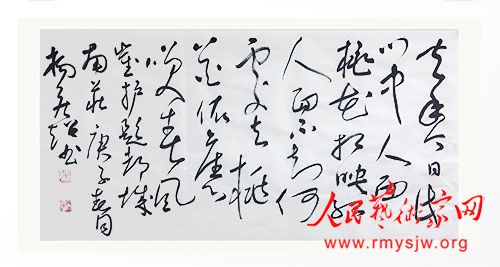 去年今日此
门中人面
桃花相映红
人面不知何
处去桃
花依旧
笑春风
崔护题都城
南莊 庚子春月
杨 书
人民藝術家网
www.rmysjw.org